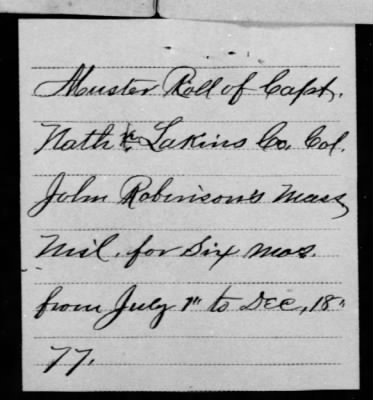 Muster Roll of Capt.
Nathl. Lakins Co. Col.
John Robinson's Mass
Mil. for Six mos.
from July 1" to Dec, 18"
77.